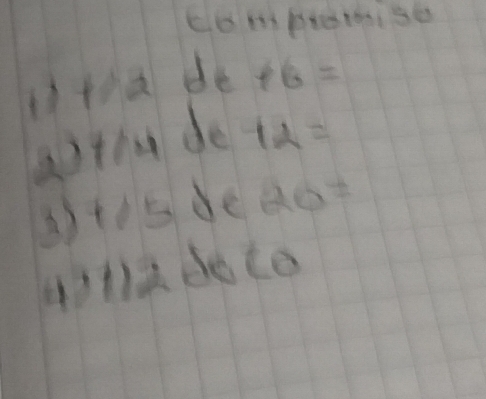 compromiso
1) 1/2 de 16 =
2) 1/4 de 12 =
3) 1/5 de 20 =
4) 1/2 de 10